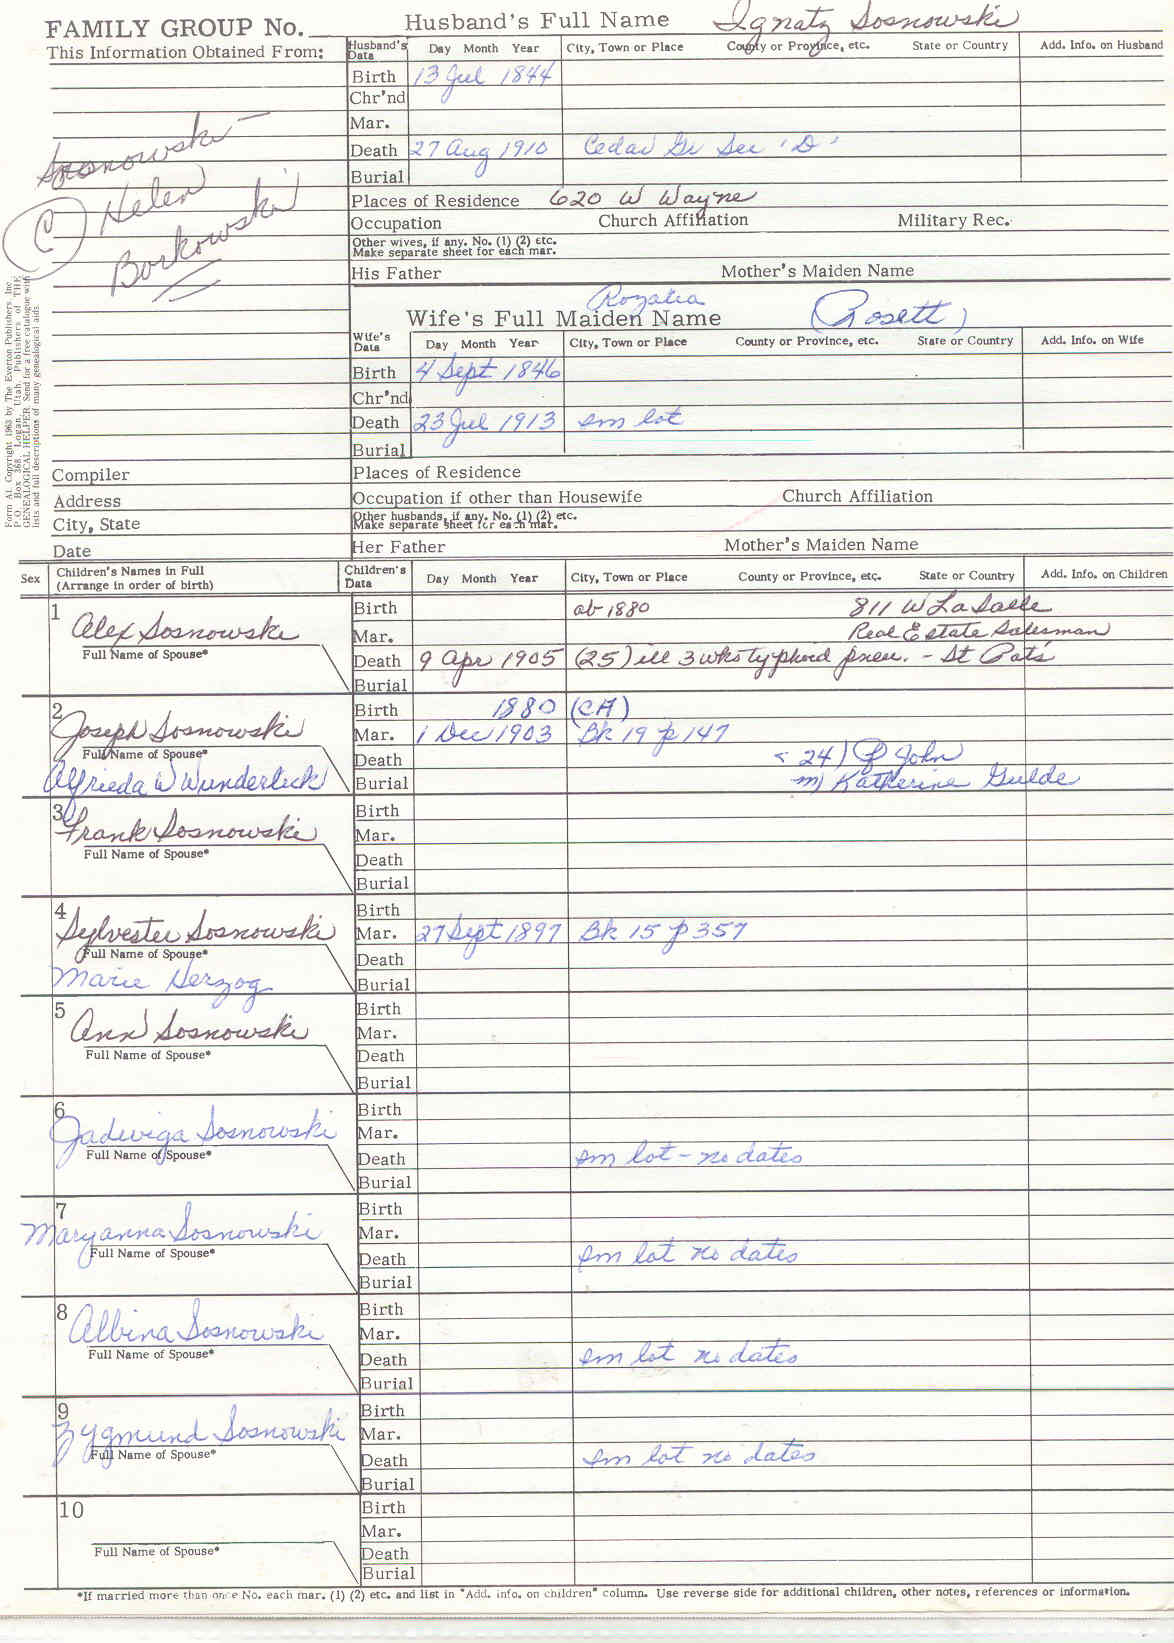 FAMILY GROUP No.
Husband's Full Name Ignatz Sosnowski
This Information Obtained From:
Husband's Data Day Month Year City, Town or Place County or Province, etc. State or Country Add. Info. on Husband
Birth 13 Jul 1844
Chr'nd
Mar.
Death 27 Aug 1910 Cedar Gr Sec 'D'
Burial
Sosnowski
(C) Helen
Borkowski
Places of Residence 620 W Wayne
Occupation Church Affiliation Military Rec.
Other wives, if any. No. (1) (2) etc.
Make separate sheet for each mar.
His Father Mother's Maiden Name
Rozalia
Wife's Full Maiden Name (Rosett)
Wife's Data Day Month Year City, Town or Place County or Province, etc. State or Country Add. Info. on Wife
Birth 4 Sept 1846
Chr'nd
Death 23 Jul 1913 sm lot
Burial
Form A1. Copyright 1963 by The Everton Publishers, Inc.
P.O. Box 368, Logan, Utah. Publishers of THE
GENEALOGICAL HELPER. Send for a free catalogue with
lists and full descriptions of many genealogical aids.
Compiler
Address
City, State
Date
Places of Residence
Occupation if other than Housewife Church Affiliation
Other husbands, if any. No. (1) (2) etc.
Make separate sheet for each mar.
Her Father Mother's Maiden Name
Sex Children's Names in Full
(Arrange in order of birth)
Children's Data Day Month Year City, Town or Place County or Province, etc. State or Country Add. Info. on Children
1 Birth ab 1880 811 W LaSalle
Alex Sosnowski Mar. Real Estate Salesman
Full Name of Spouse* Death 9 Apr 1905 (25) ill 3 wks typhoid pneu. - St Pat's
Burial
2 Birth 1880 (CA)
Joseph Sosnowski Mar. 1 Dec 1903 Bk 19 p 147
Full Name of Spouse* Death < 24) P John
Alfrieda W Wunderlick Burial m) Katherine Gulde
3 Birth
Frank Sosnowski Mar.
Full Name of Spouse* Death
Burial
4 Birth
Sylvester Sosnowski Mar. 27 Sept 1897 Bk 15 p 357
Full Name of Spouse* Death
Marie Herzog Burial
5 Birth
Ann Sosnowski Mar.
Full Name of Spouse* Death
Burial
6 Birth
Jadwiga Sosnowski Mar.
Full Name of Spouse* Death sm lot - no dates
Burial
7 Birth
Maryanna Sosnowski Mar.
Full Name of Spouse* Death sm lot no dates
Burial
8 Birth
Albina Sosnowski Mar.
Full Name of Spouse* Death sm lot no dates
Burial
9 Birth
Zygmund Sosnowski Mar.
Full Name of Spouse* Death sm lot no dates
Burial
10 Birth
Mar.
Full Name of Spouse* Death
Burial
*If married more than once No. each mar. (1) (2) etc. and list in "Add. info. on children" column. Use reverse side for additional children, other notes, references or information.